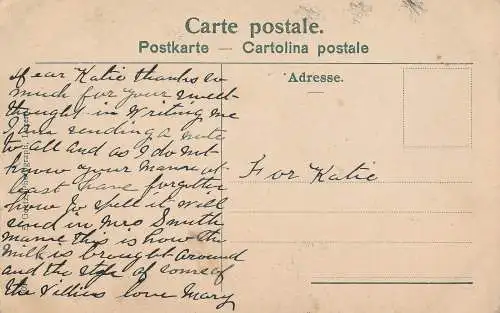 Carte postale.
Postkarte — Cartolina postale
Adresse.
Dear Katie thanks so
much for your sweet
thought in writing me
I am sending a note
to all and as I do not
know your Mama at
least have forgotten
how to spell it will
send in Mrs Smith
name this is how the
milk is brought around
and the style of some of
the villies love Mary
For Katie